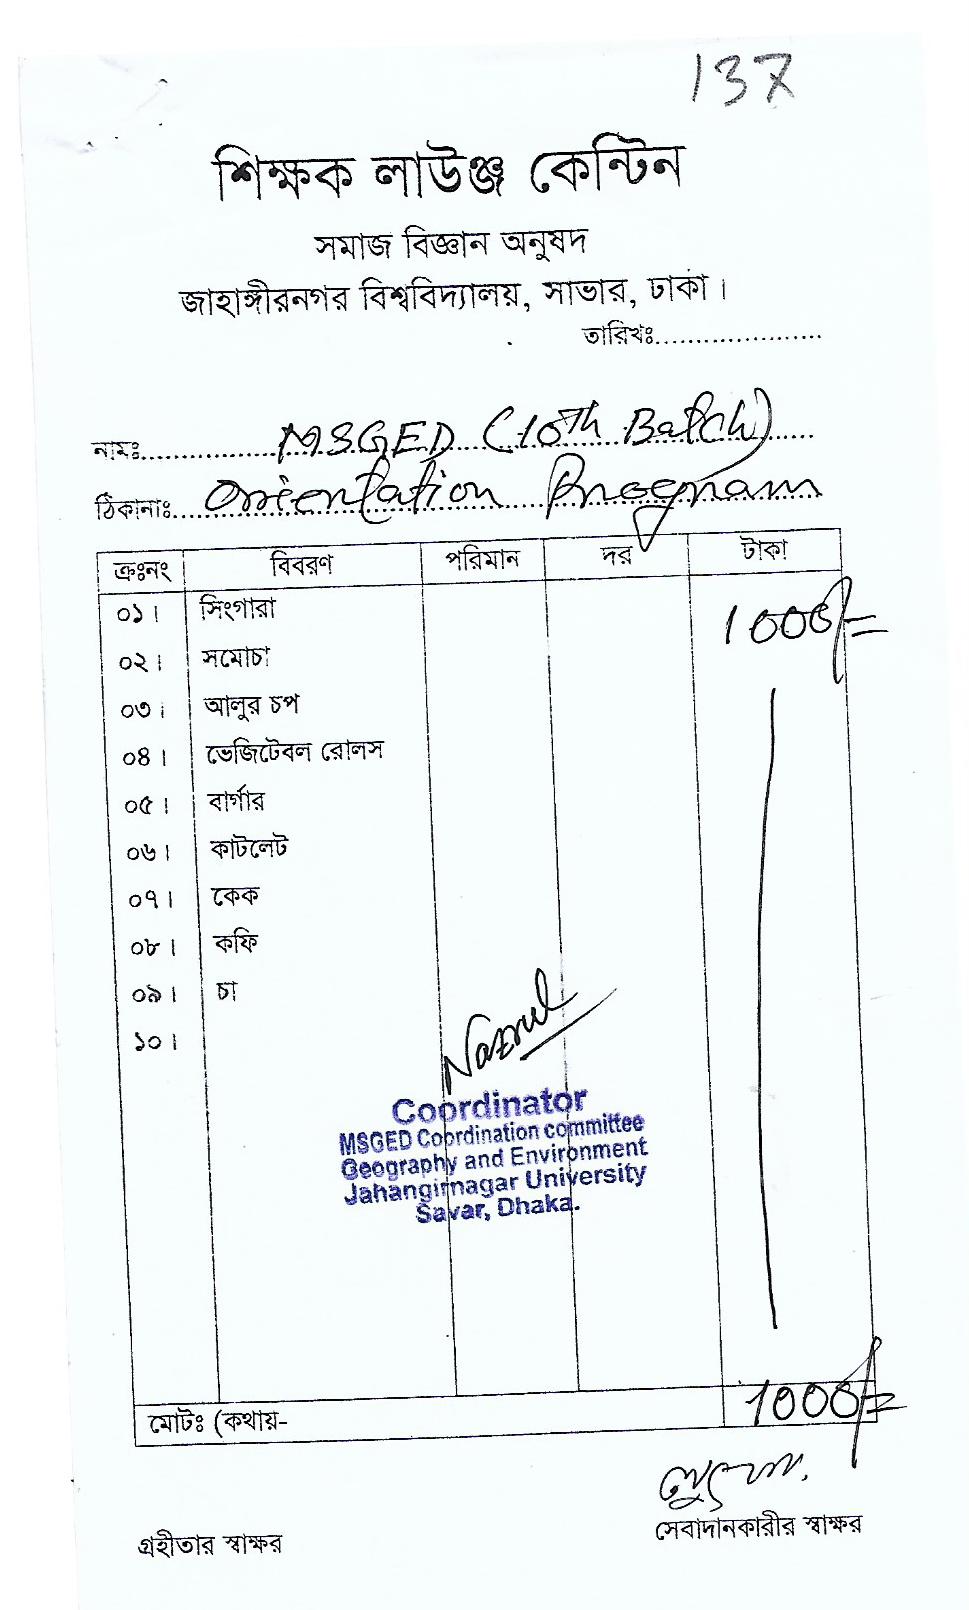 137
শিক্ষক লাউঞ্জ কেন্টিন
সমাজ বিজ্ঞান অনুষদ
জাহাঙ্গীরনগর বিশ্ববিদ্যালয়, সাভার, ঢাকা।
তারিখঃ.....................
নামঃ.............MSGED (10th Batch)....
ঠিকানাঃ....Orientation Program
ক্রঃনং বিবরণ পরিমান দর টাকা
০১। সিংগারা 1000/=
০২। সমোচা
০৩। আলুর চপ
০৪। ভেজিটেবল রোলস
০৫। বার্গার
০৬। কাটলেট
০৭। কেক
০৮। কফি
০৯। চা
১০।
Nazrul
Coordinator
MSGED Coordination committee
Geography and Environment
Jahangirnagar University
Savar, Dhaka.
মোটঃ (কথায়- 1000/=
গ্রহীতার স্বাক্ষর সেবাদানকারীর স্বাক্ষর